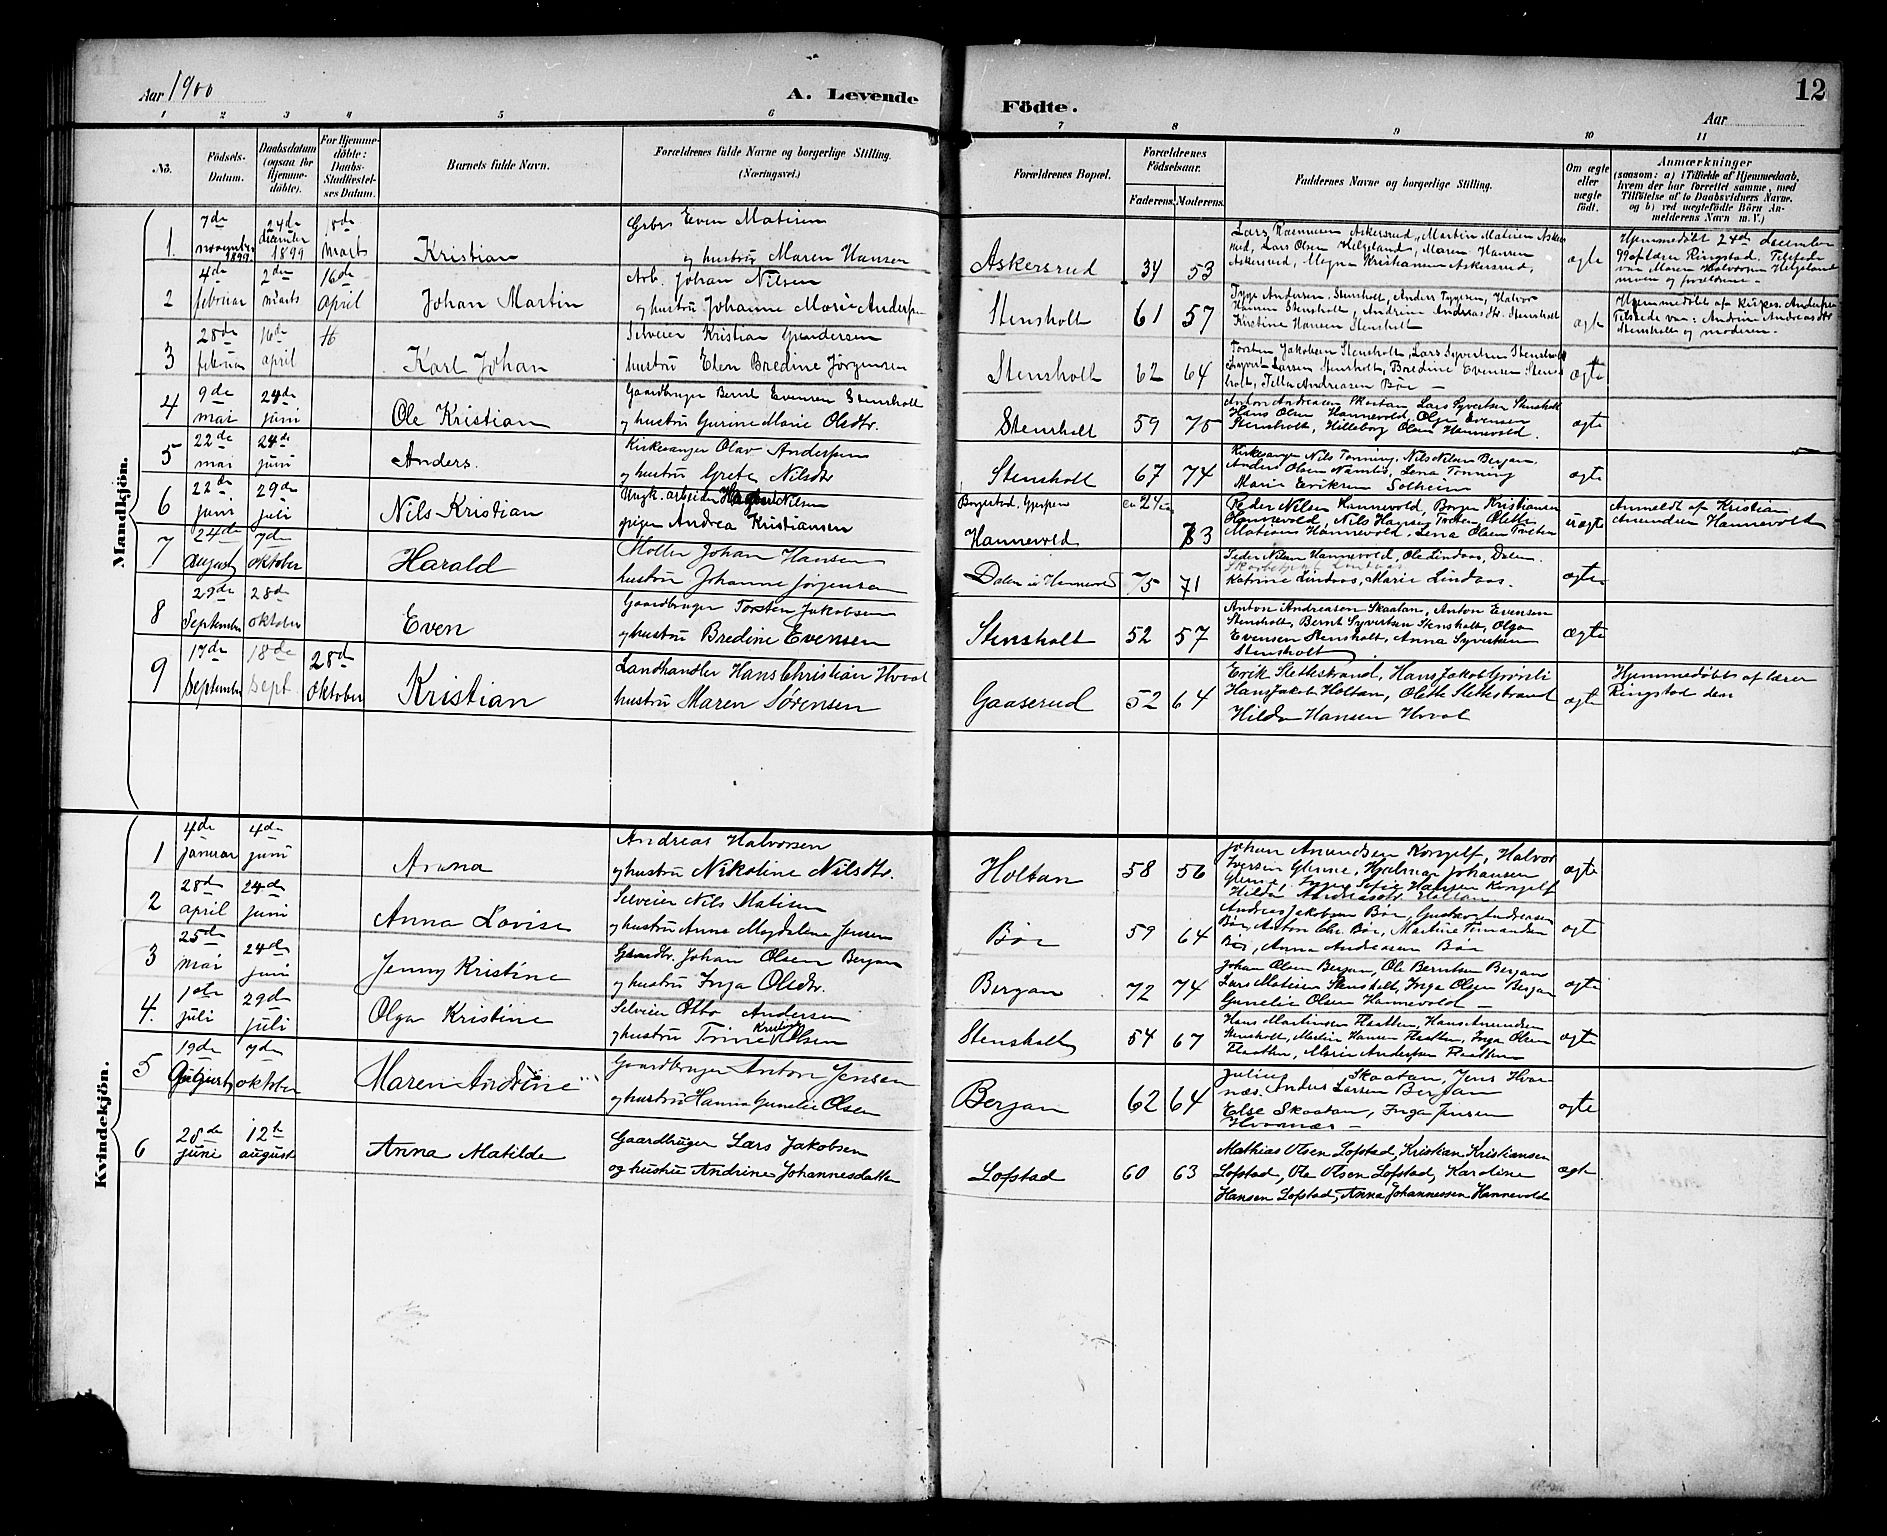 12
Aar 1900
A. Levende Födte.
Aar
1 2 3 4 5 6 7 8 9 10 11
No.
Födsels-Datum.
Daabsdatum (ogsaa for Hjemme-döbte).
For Hjemme-döbte: Daabs-Stadfæstel-ses Datum.
Barnets fulde Navn.
Forældrenes fulde Navne og borgerlige Stilling. (Næringsvei.)
Forældrenes Bopæl.
Forældrenes Födselsaar.
Faderens. Moderens.
Faddernes Navne og borgerlige Stilling.
Om ægte eller uægte födt.
Anmærkninger (saasom: a) i Tilfælde af Hjemmedaab, hvem der har forrettet samme, med Tilföielse af to Daabsvidners Navne, og b) ved uegtefödte Börn An-melderens Navn m. V.)
Mandkjön.
1. 7de november 1899 24de december 1899 8de marts Kristian
Even Matisen
og hustru Maren Hansen
Askersrud 34 53
Lars Rasmusen Askersrud, Martin Matisen Askers
rud, Lars Olsen Helgeland, Maren Hansen
Askersrud, Kristiansen Askersrud,
ægte
Hjemmedøbt 24de december
99 af lærer Ringstad. Tilstede
var Maren Halvorsen Helgeland
2 4de februar 2den marts 16de april Johan Martin
Arb. Johan Nilsen
og hustru Johanne Marie Andersen
Stensholt 61 57
Tyge Andersen Stensholt, Anders Tygesen, Halvor
Hansen Stensholt, Andrine Andreasdtr. Stensholt
Kirstine Hansen Stensholt
ægte
Hjemmedøbt af Andersen
Tilstede var: Andrine Andreasdtr
Stensholt og moderen.
3 28de februar 16de april Karl Johan
Selveier Kristian Gundersen
hustru Elen Bredine Jørgensen
Stensholt 62 64
Torsten Jakobsen Stensholt, Lars Syvertsen Stensholt
Larsen Stensholt, Bredine Evensen Stens
holt, Andreasen Bøe
ægte
4 9de mai 24de juni Ole Kristian
Gaardbruger Bernt Evensen Stensholt
og hustru Gurine Marie Olsdtr.
Stensholt 59 75
Anton Andreasen Skaatan Lars Syvertsen Stensholt
Hans Olsen Hannevold, Olga Evensen
Stensholt, Hilleborg Olsen Hannevold.
ægte
5 22de mai 24de juni Anders.
Kirkesanger Olav Andersen
og hustru Grete Nilsdtr
Stensholt 67 74
Kirkesanger Nils Tønning, Nils Nilsen Berjan,
Anders Olsen Lena Tønning
Marie Eriksen Solheim
ægte
6 22de juni 29de juli Nils Kristian
arbeider Nilsen
pigen Andrea Kristiansen
Borgestad, Gjerpen
Hannevold 73
Peder Nilsen Hannevold, Borger Kristiansen
Hannevold, Nils Hansen Olette
Matisen Hannevold, Lena Olsen
uægte
Anmeldt af Kristian
Amundsen Hannevold
7 24de august 7de oktober Harald
Møller Johan Hansen
hustru Johanne Jørgensen
Dalen i Hannevold 75 71
Peder Nilsen Hannevold, Ole Lindaas, Dalen
Katrine Lindaas, Marie Lindaas.
ægte
8 29de September 28de oktober Even
Gaardbruger Torsten Jakobsen
og hustru Bredine Evensen
Stensholt 52 57
Anton Andreasen Skaatan, Anton Evensen
Stensholt, Bernt Syvertsen Stensholt, Olga
Evensen Stensholt, Anna Syvertsen
Stensholt
ægte
9 17de September 18de Sept. 28de Oktober Kristian
Landhandler Hans Christian Hvaal
hustru Maren Sørensen
Gaaserud 52 64
Erik Slettestrand, Hans Jakob Grønli
Hans Jakob Holtan, Olette Slettestrand
Hilda Hansen Hvaal
ægte
Hjemmedøbt af lærer
Ringstad den
Kvindekjön.
1 4de januar 4de juni Anna
Andreas Halvorsen
og hustru Nikoline Nilsdtr.
Holtan 58 56
Johan Amundsen Halvor
Iversen Hjalmar Johansen
Sofie Hansen
Hilda Andreasdtr. Holtan
ægte
2 28de april 24de juni Anna Lovise
Selveier Nils Matisen
og hustru Anna Magdalene Jensen
Bøe 59 64
Andreas Jakobsen Bøe, Gustav Andreasen
Bøe, Anton Chr. Bøe, Martine
Bøe, Anna Andreasen Bøe
ægt
3 25de mai 24de juni Jenny Kristine
Gaardbr. Johan Olsen Berjan
og hustru Inga Olsdtr.
Berjan 72 74
Johan Olsen Berjan, Ole Berntsen Berjan
Lars Matisen Stensholt, Inga Olsen Berjan
Gunelie Olsen Hannevold
ægte
4. 1ste juli 29de juli Olga Kristine
Selveier Otto Andersen
og hustru Trine Kristine Olsen
Stensholt 54 67
Hans Martinsen Flaatten, Hans Amundsen
Stensholt, Martin Hansen Flaatten, Inga Olsen
Flaatten, Marie Andersen Flaatten
ægte
5 19de August 7de oktober Maren Andrine
Gaardbruger Anton Jensen
og hustru Hanna Gunelie Olsen
Berjan 62 64
Julius Skaatan, Jens Hvar
næs. Anders Larsen Berjan
Else Skaatan, Inga Jensen
ægte
6 28de juni 12te august Anna Matilde
Gaardbruger Lars Jakobsen
og hustru Andrine Johannesdatter
Lofstad 60 63
Mathias Olsen Lofstad, Kristian Kristiansen
Lofstad, Ole Olsen Lofstad, Karoline
Hansen Lofstad, Anna Johannessen Hannevold
ægte